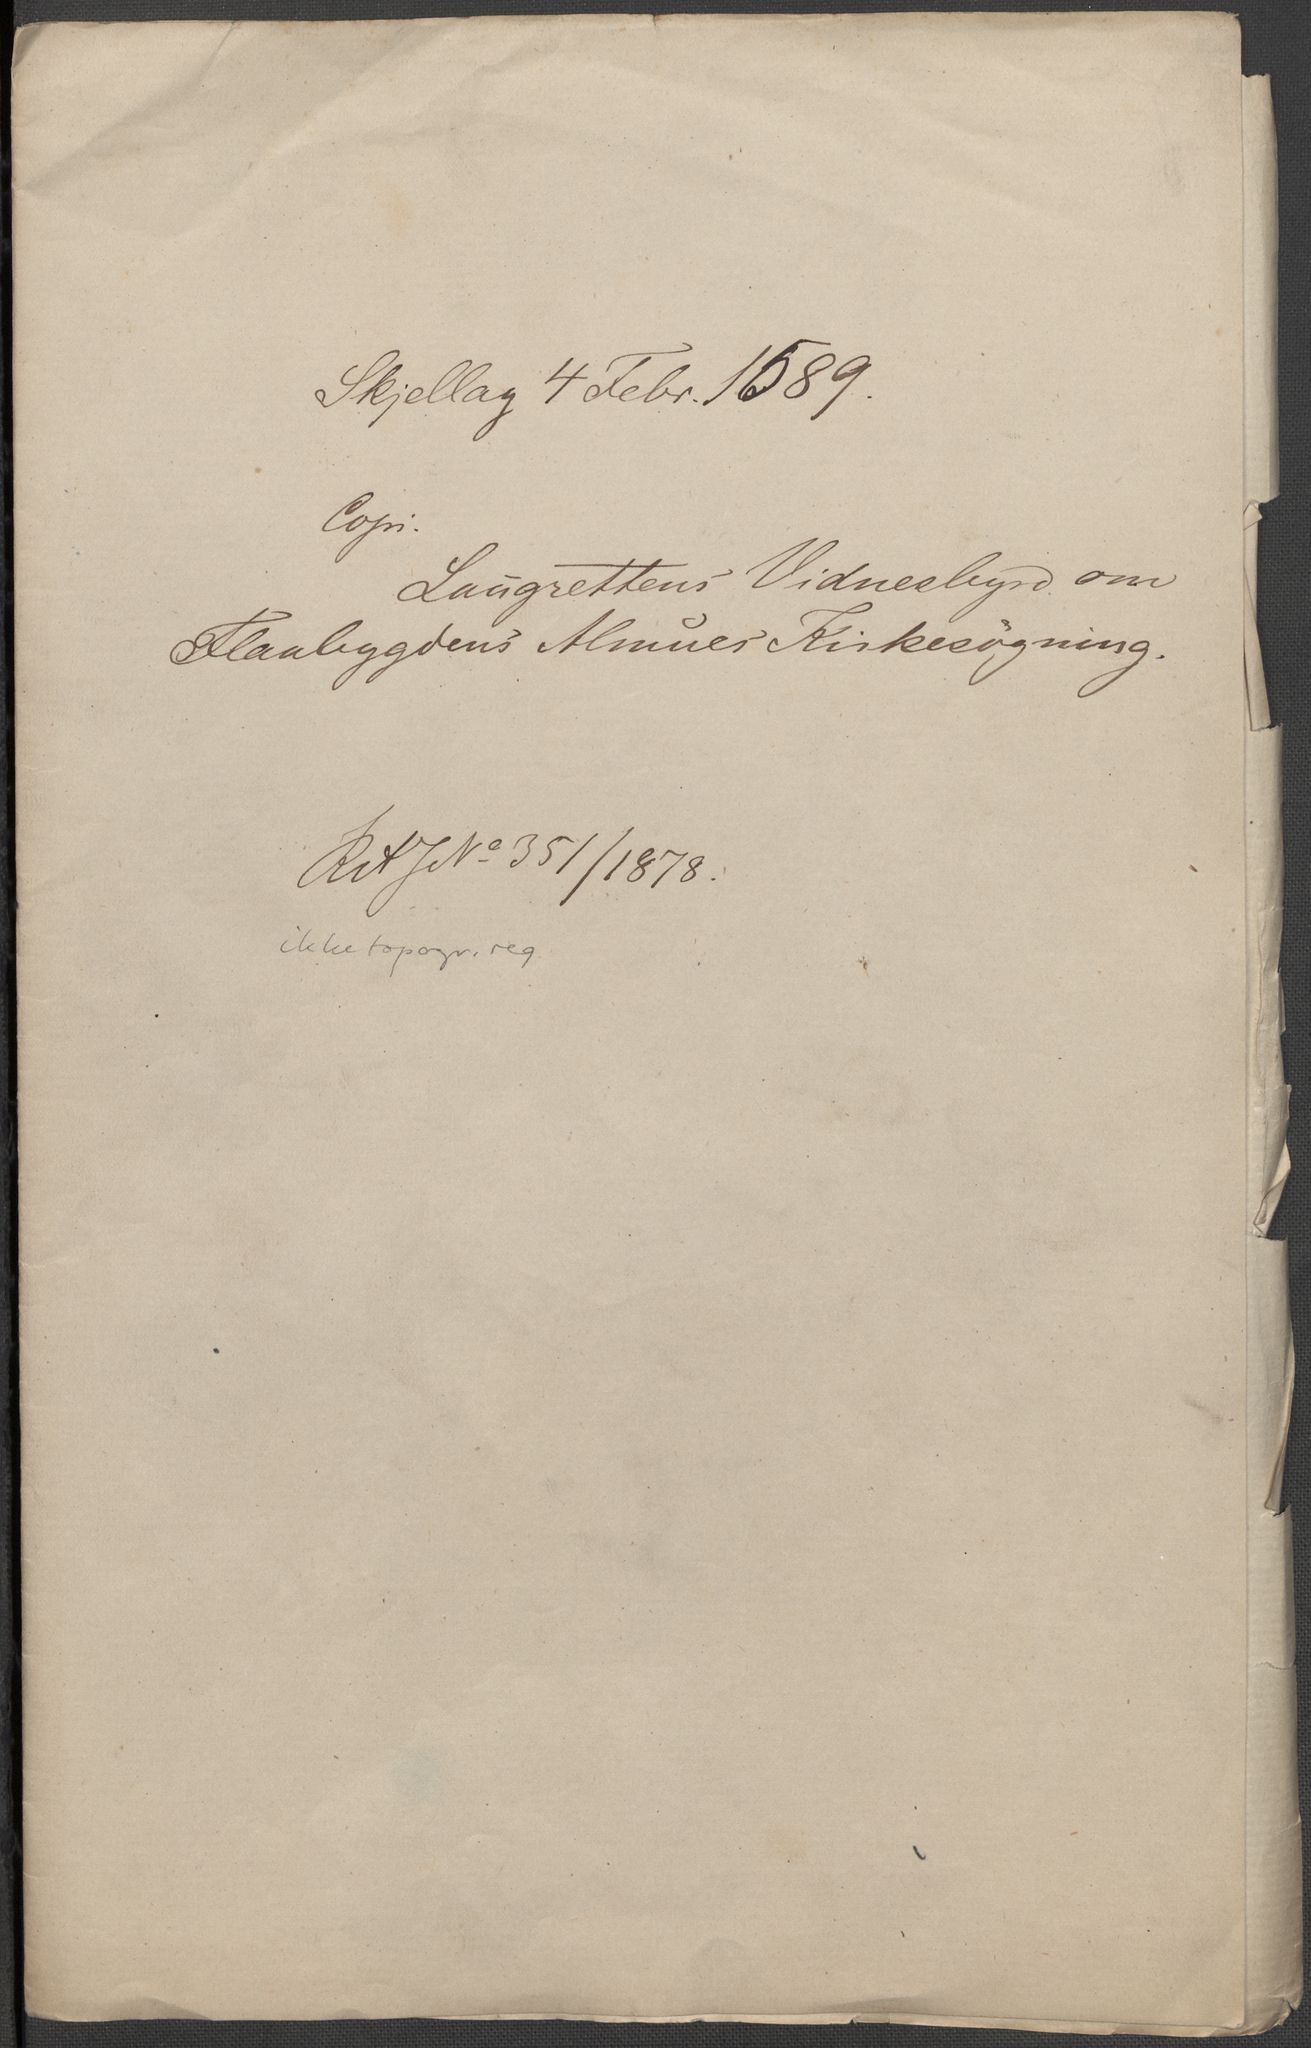 Skjellag 4 Febr. 1589.
Copi.
Laugrettens Vidnesbyrd om
Flaabygdens Almues Kirkesögning.
RA JNo 351/1878.
ikke topogr. reg